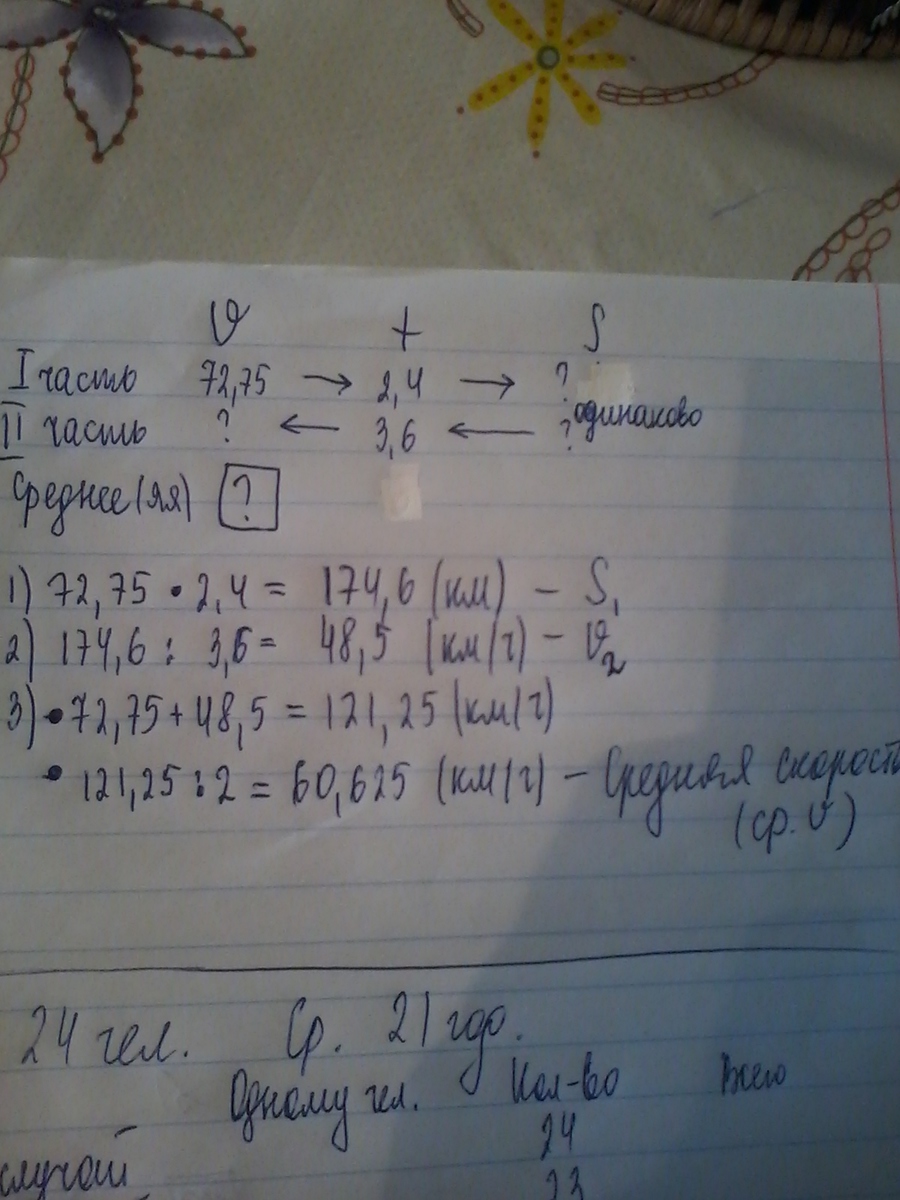 υ t S
I часть 72,75 → 2,4 → ?
одинаково
II часть ? ← 3,6 ← ?
Среднее(яя) ?
1) 72,75 • 2,4 = 174,6 (км) – S₁
2) 174,6 : 3,6 = 48,5 (км/ч) – υ₂
3) • 72,75 + 48,5 = 121,25 (км/ч)
• 121,25 : 2 = 60,625 (км/ч) – Средняя скорость
(ср. υ)
24 чел. Ср. 21 годо.
Одному чел. Кол-во Всего
24
случай 23